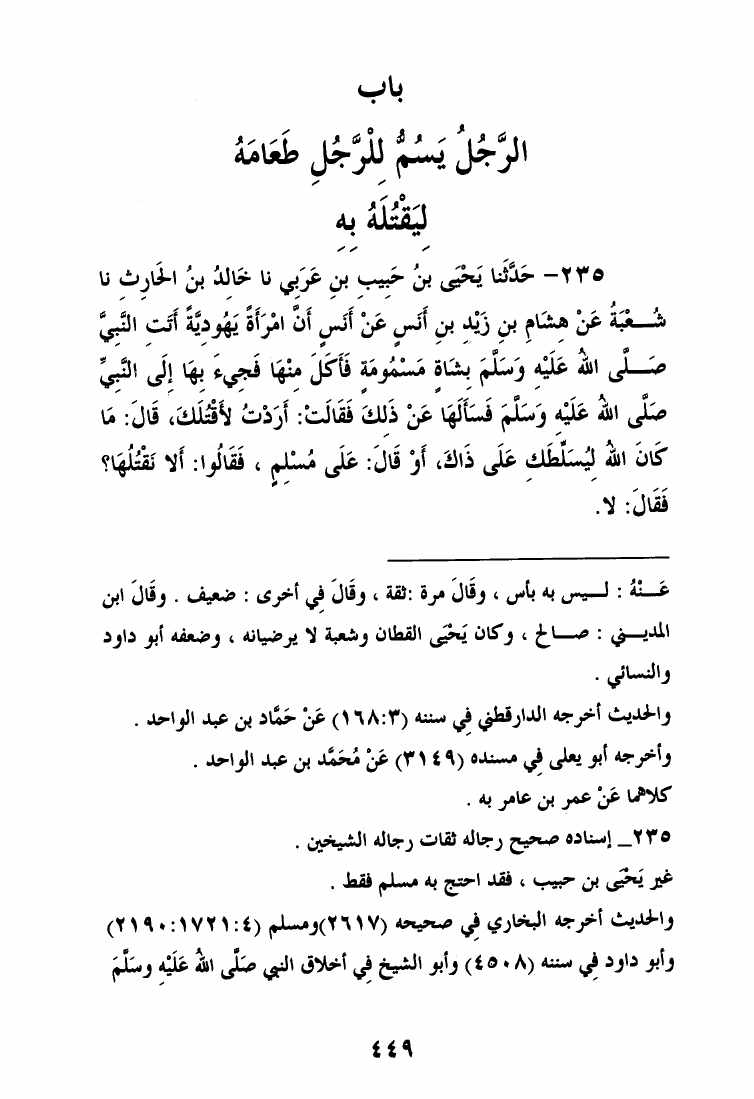 باب
الرَّجُلُ يَسُمُّ لِلْرَّجُلِ طَعَامَهُ
لِيَقْتُلَهُ بِهِ
٢٣٥– حَدَّثَنا يَحْيَى بنُ حَبِيبِ بنِ عَرَبي نا خَالدُ بنُ الحَارِثِ نا
شُـــعْبَةُ عَنْ هِشَامِ بنِ زَيْدِ بنِ أَنَسٍ عَنْ أَنَسٍ أَنَّ امْرَأَةً يَهُوديَّةً أَتَتِ النَّبيَّ
صَـــلَّى اللهُ عَلَيْهِ وَسَلَّمَ بِشَاةٍ مَسْمُومَةٍ فَأَكَلَ مِنْهَا فَجِيءَ بِهَا إِلَى النَّبيِّ
صَلَّى اللهُ عَلَيْهِ وَسَلَّمَ فَسَأَلَهَا عَنْ ذَلِكَ فَقَالَتْ: أَرَدْتُ لأَقْتُلَكَ، قَالَ: مَا
كَانَ اللهُ لِيُسَلِّطَكِ عَلَى ذَاكَ، أَوْ قَالَ: عَلَى مُسْلِمٍ ، فَقَالُوا: أَلا نَقْتُلُهَا؟
فَقَالَ: لا.
عَـــنْهُ : لـــيس به بأس ، وقَالَ مرة :ثقة ، وقَالَ فِي أخرى : ضعيف . وقَالَ ابن
المديـــني : صـــالح ، وكان يَحْيَى القطان وشعبة لا يرضيانه ، وضعفه أبو داود
والنسائي .
والحديث أخرجه الدارقطني فِي سننه (١٦٨:٣) عَنْ حَمَّاد بن عبد الواحد .
وأخرجه أبو يعلى فِي مسنده (٣١٤٩) عَنْ مُحَمَّد بن عبد الواحد .
كلاهما عَنْ عمر بن عامر به .
٢٣٥_ إسناده صحيح رجاله ثقات رجاله الشيخين .
غير يَحْيَى بن حبيب ، فقد احتج به مسلم فقط .
والحديث أخرجه البخاري فِي صحيحه (٢٦١٧)ومسلم (٢١٩٠:١٧٢١:٤)
وأبو داود فِي سننه (٤٥٠٨) وأبو الشيخ فِي أخلاق النبي صَلَّى اللهُ عَلَيْهِ وسَلَّمَ
٤٤٩